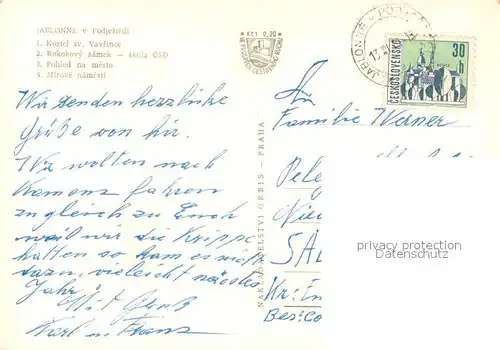 JABLONNÉ v Podještědí
1. Kostel sv. Vavřince
2. Rokokový zámek — škola ČSD
3. Pohled na město
4. Mírové náměstí
Kčs 0,20
JABLONNÉ V
ČESKOSLOVENSKO
30 h
Wir senden herzliche
Grüße von hir.
Wir wolten nach
Kamenz fahren
zugleich zu Euch
weil wir die Krippe
hatten so kam es nicht
dazu, vieleicht nächstes
Jahr. Mit Gruß
Karl u. Franz
NAKLADATELSTVÍ ORBIS — PRAHA
An
Familie Werner
Kr:
privacy protection
Datenschutz